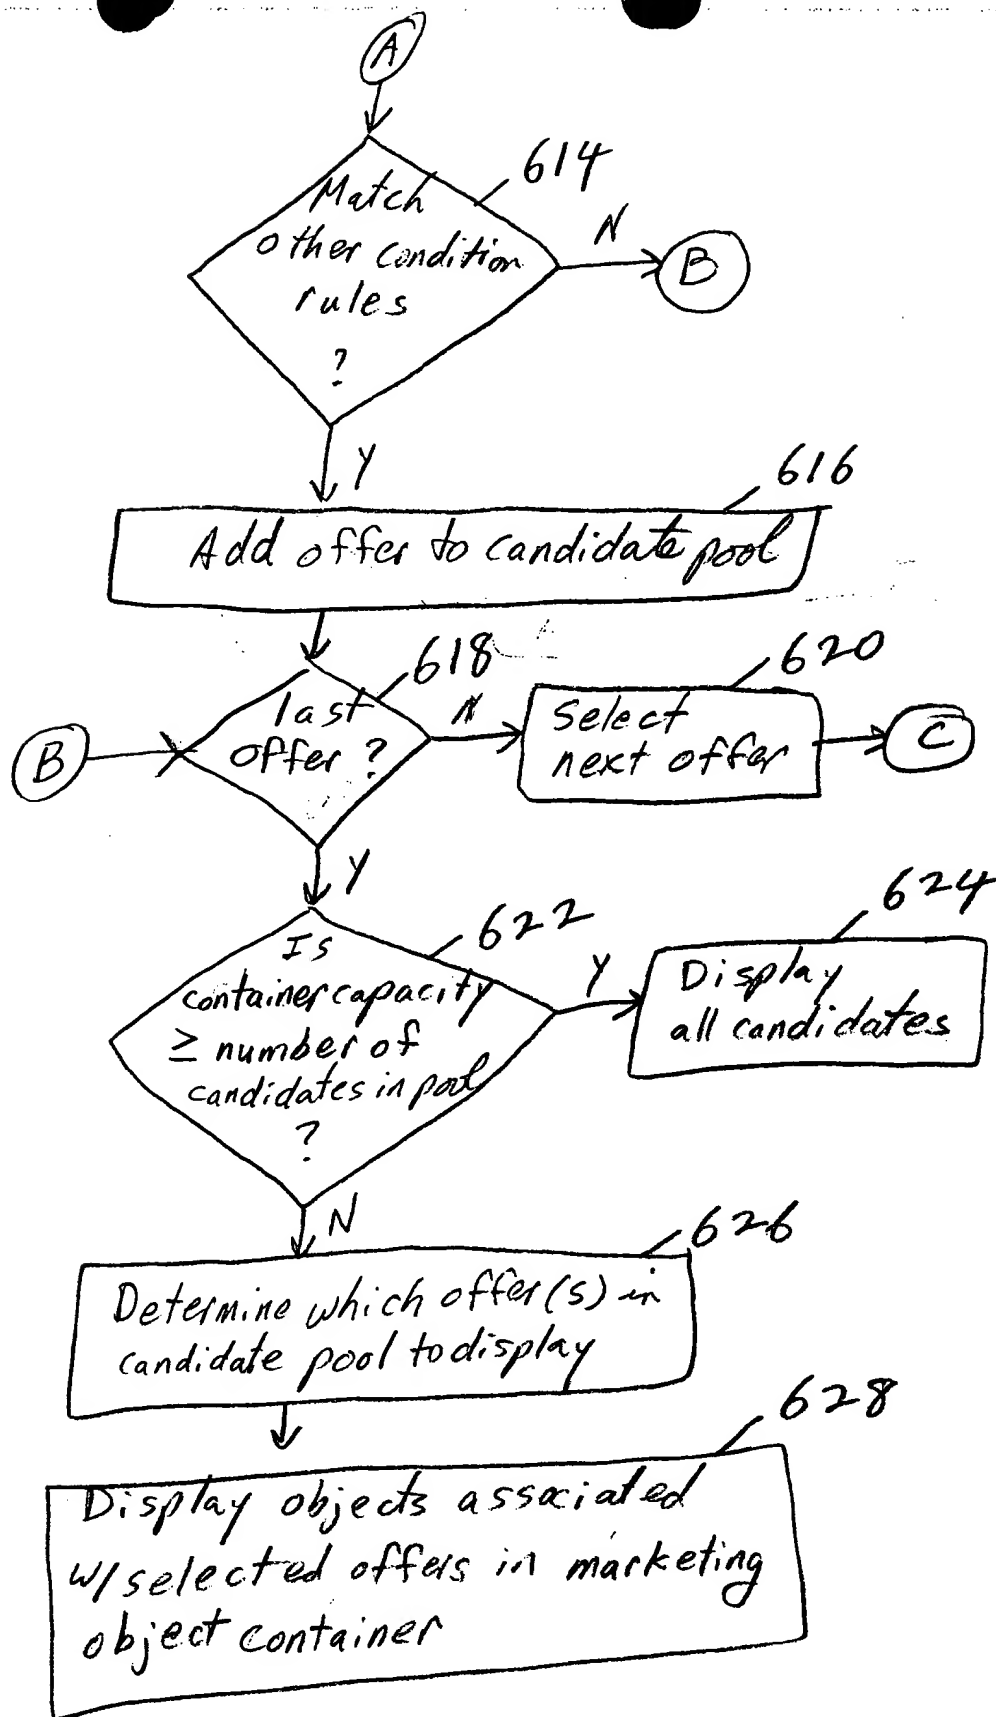 A
614
Match
other condition
rules
?
N
B
Y
616
Add offer to candidate pool
618
last
offer ?
N
620
Select
next offer
C
B
Y
622
Is
container capacity
≥ number of
candidates in pool
?
Y
624
Display
all candidates
N
626
Determine which offer(s) in
candidate pool to display
628
Display objects associated
w/ selected offers in marketing
object container